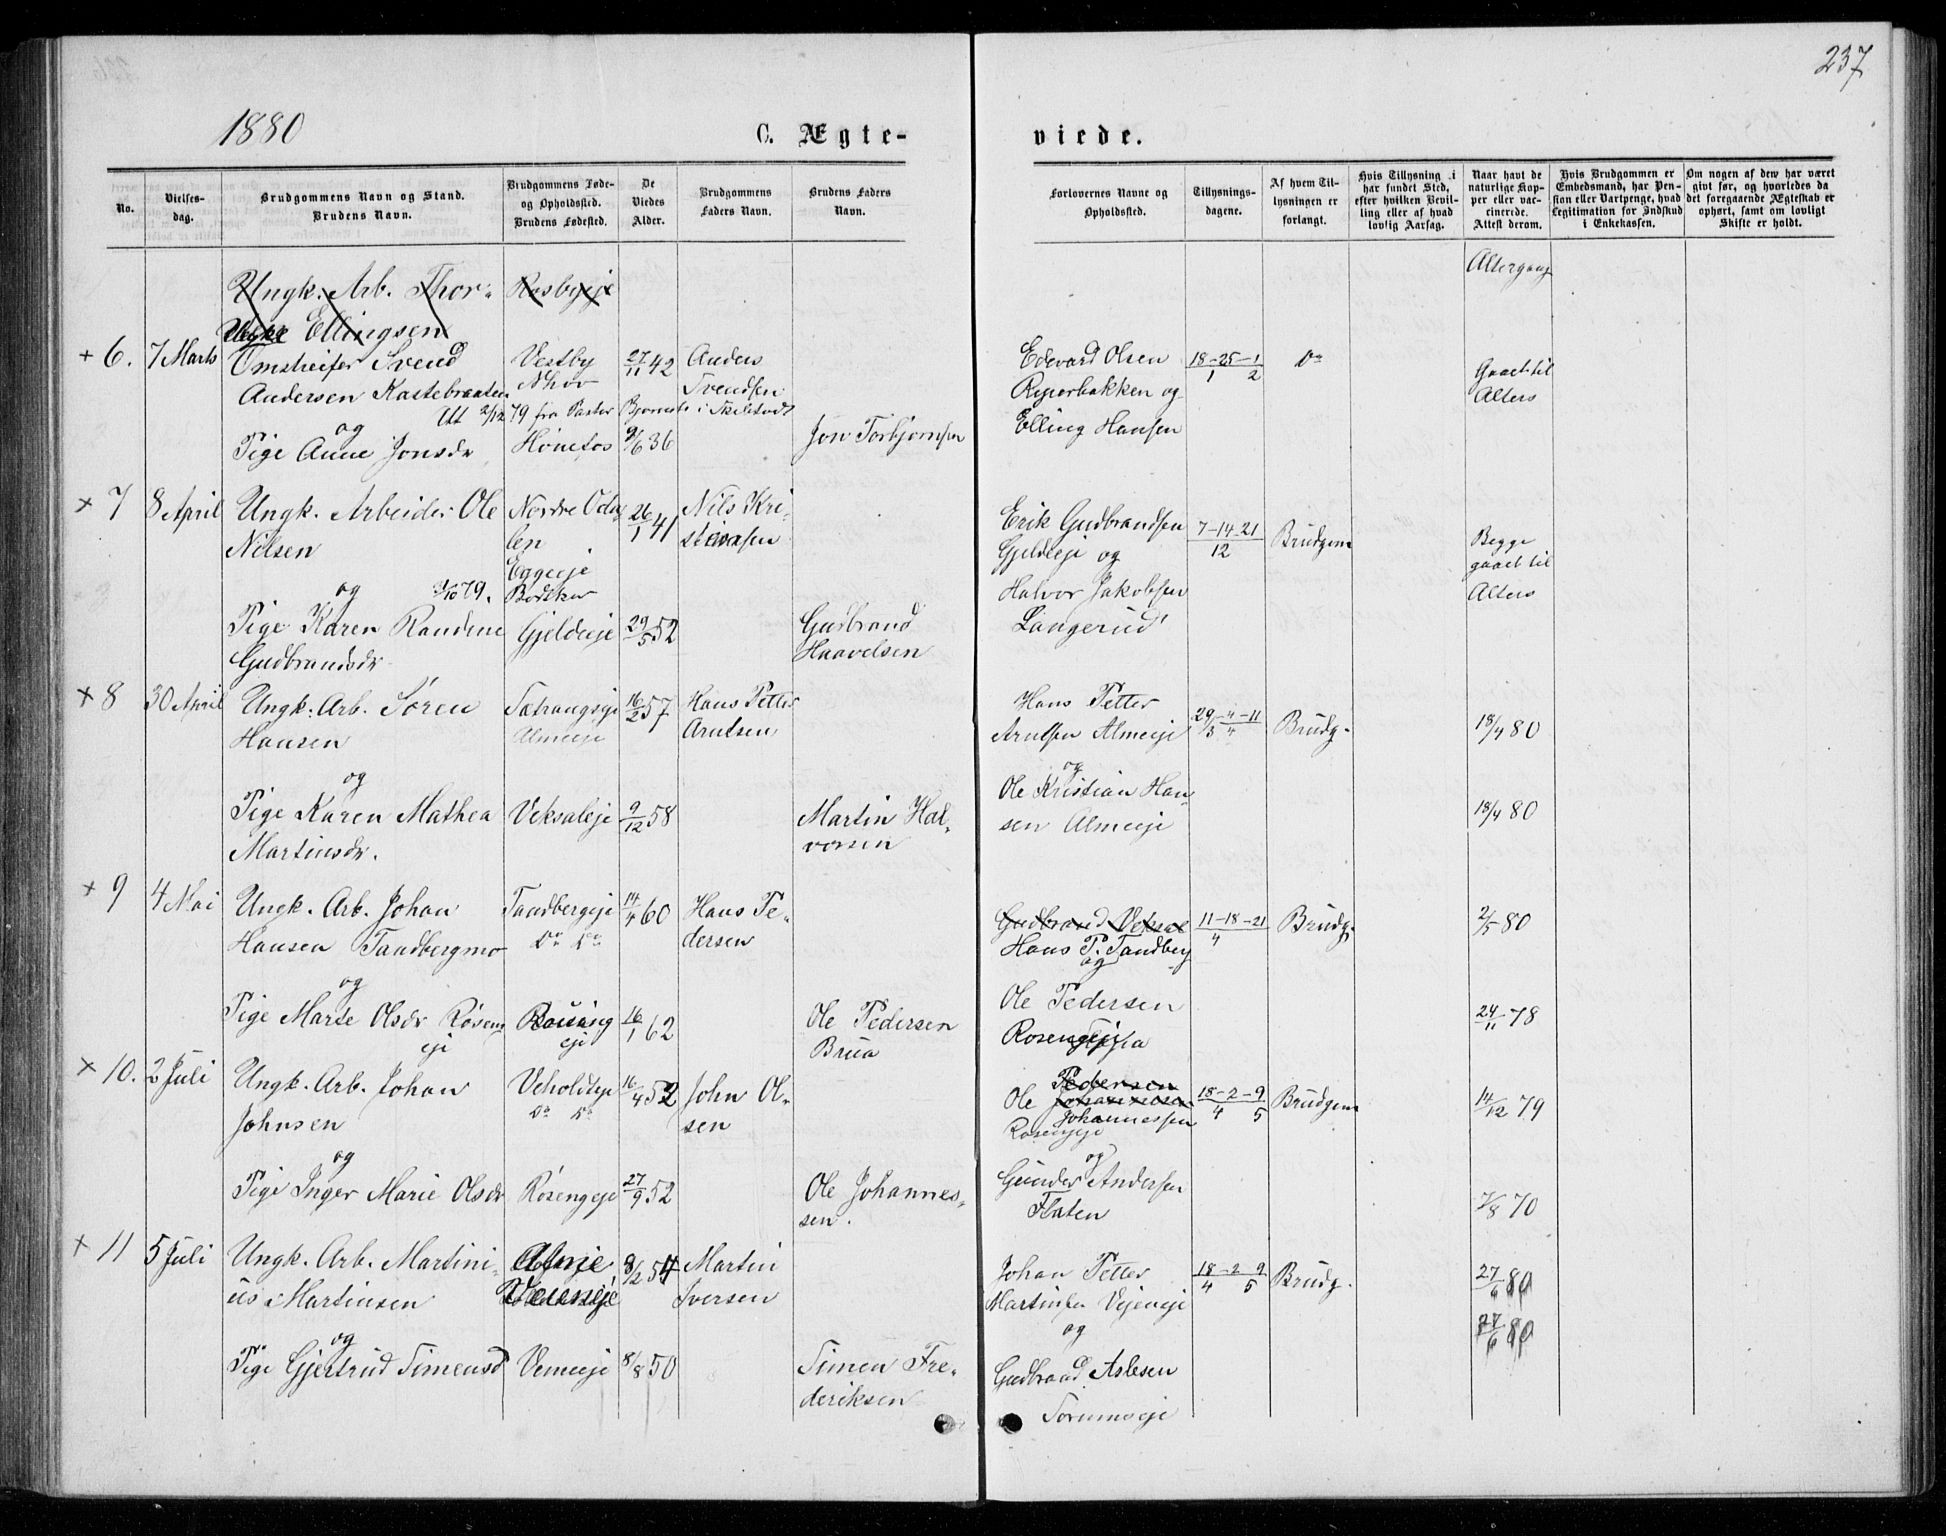 237
1880
C. Ægte-
viede.
No.
Vielses-
dag.
Brudgommens Navn og Stand.
Brudens Navn.
Brudgommens Føde-
og Opholdssted.
Brudens Fødested.
De
Viedes
Alder.
Brudgommens
Faders Navn.
Brudens Faders
Navn.
Forlovernes Navne og
Opholdssted.
Tillysnings-
dagene.
Af hvem Til-
lysningen er
forlangt.
Hvis Tillysning ei
har fundet Sted,
efter hvilken Bevil-
ling eller af hvad
lovlig Aarsag.
Naar havt de
naturlige Kop-
per eller vac-
cinerede.
Attest derom.
Hvis Brudgommen er
Embedsmand, har Pen-
sion eller Vartpenge, hvad
Legitimation for Indskud
i Enkekassen.
Om nogen af dem har været
givt før, og hvorledes da
det foregaaende Ægteskab er
ophørt, samt om lovligt
Skifte er holdt.
Altergang
Ungk. Arb. Thor- Rosbyeje
Ellingsen
+ 6. 7 Marts Svend Vestby 27/11 42 Anders
Andersen Kastebraaten Svendsen
Att 2/12 79 fra Pastor i
og
Pige Anne Jonsdr Hønefos 9/6 36 Jon Torbjørnsen
Edevard Olsen 18-25-1 Do
Riperbakken og 1 2
Elling Hansen
Gaaet til
Alters
+ 7 8 April Ungk. Arbeider Ole Nordre Oda 26/1 41 Nils Kri-
Nilsen len stiansen
Eggeeje
og 79. Bødsker
Pige Karen Randine Gjeldeje 29/5 52 Gudbrand
Gudbrandsdr Haavelsen
Erik Gudbrandsen 7-14-21 Brudgom
Gjeldeje og 12
Halvor Jakobsen
Langerud
Begge
gaaet til
Alters
+ 8 30 April Ungk. Arb. Søren Satrangseje 16/2 57 Hans Petter
Hansen Almeeje Arntsen
og
Pige Karen Mathea Veksaleje 9/12 58 Martin Hal-
Martinsdr. vorsen
Hans Petter 29-4-11
Arntsen Almeeje 3 4 Brudg. 18/4 80
og
Ole Kristian Han-
sen Almeeje 18/4 80
+ 9 4 Mai Ungk. Arb. Johan Tandbergeje 14/4 60 Hans Pe-
Hansen Tandbergmo Do Do dersen
og
Pige Marte Olsdr Roseng 16/1 62 Ole Pedersen
eje eje Brua
Gudbrand Veksal 11-18-21 Brudg. 2/5 80
Hans P. Tandberg 4
og
Ole Pedersen 24/11 78
+ 10. 2 Juli Ungk. Arb. Johan Veholdteje 16/4 52 John Ol-
Johnsen Do Do sen
og
Pige Inger Marie Olsdr Rosengeje 27/9 52 Ole Johannes-
sen.
Pedersen
Ole Johannesen 18-2-9 Brudgom 14/12 79
Johannessen 4 5
Rosengeje
og
Gunder Andersen
Flaten 7/8 70
+ 11 5 Juli Ungk. Arb. Martini- Almeje 8/2 54 Martin
us Martinsen Iversen
og
Pige Gjertrud Simensd Vemeeje 8/8 50 Simen Fre-
deriksen
Johan Petter 18-2-9 Brudg. 27/6 80
Martinsen Vejeneje 4 5
og 27/6 80
Gudbrand Aslesen